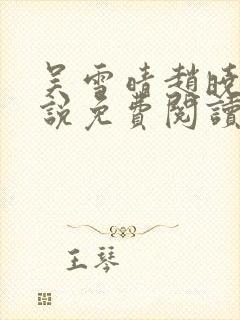 吴雪晴趙晓
說免費閱讀
王琴